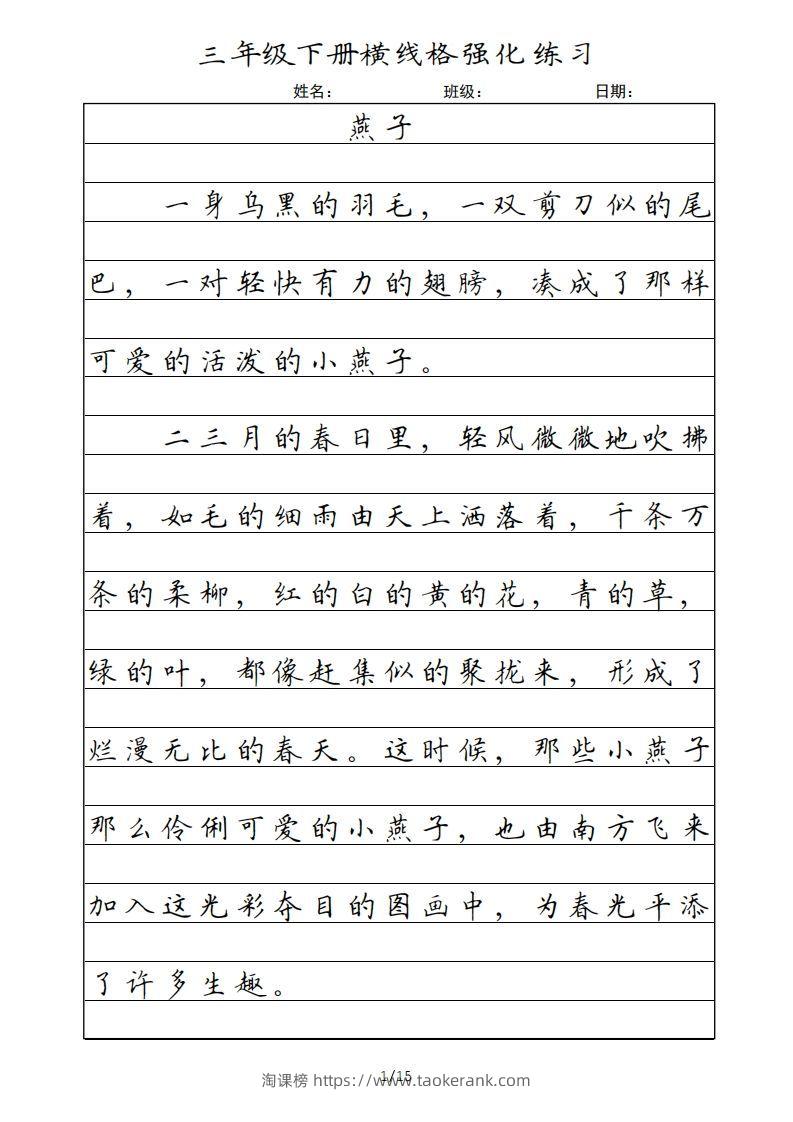 三年级下册横线格强化练习
姓名： 班级： 日期：
燕子
一身乌黑的羽毛，一双剪刀似的尾
巴，一对轻快有力的翅膀，凑成了那样
可爱的活泼的小燕子。
二三月的春日里，轻风微微地吹拂
着，如毛的细雨由天上洒落着，千条万
条的柔柳，红的白的黄的花，青的草，
绿的叶，都像赶集似的聚拢来，形成了
烂漫无比的春天。这时候，那些小燕子
那么伶俐可爱的小燕子，也由南方飞来
加入这光彩夺目的图画中，为春光平添
了许多生趣。
1/15
淘课榜 https://www.taokerank.com